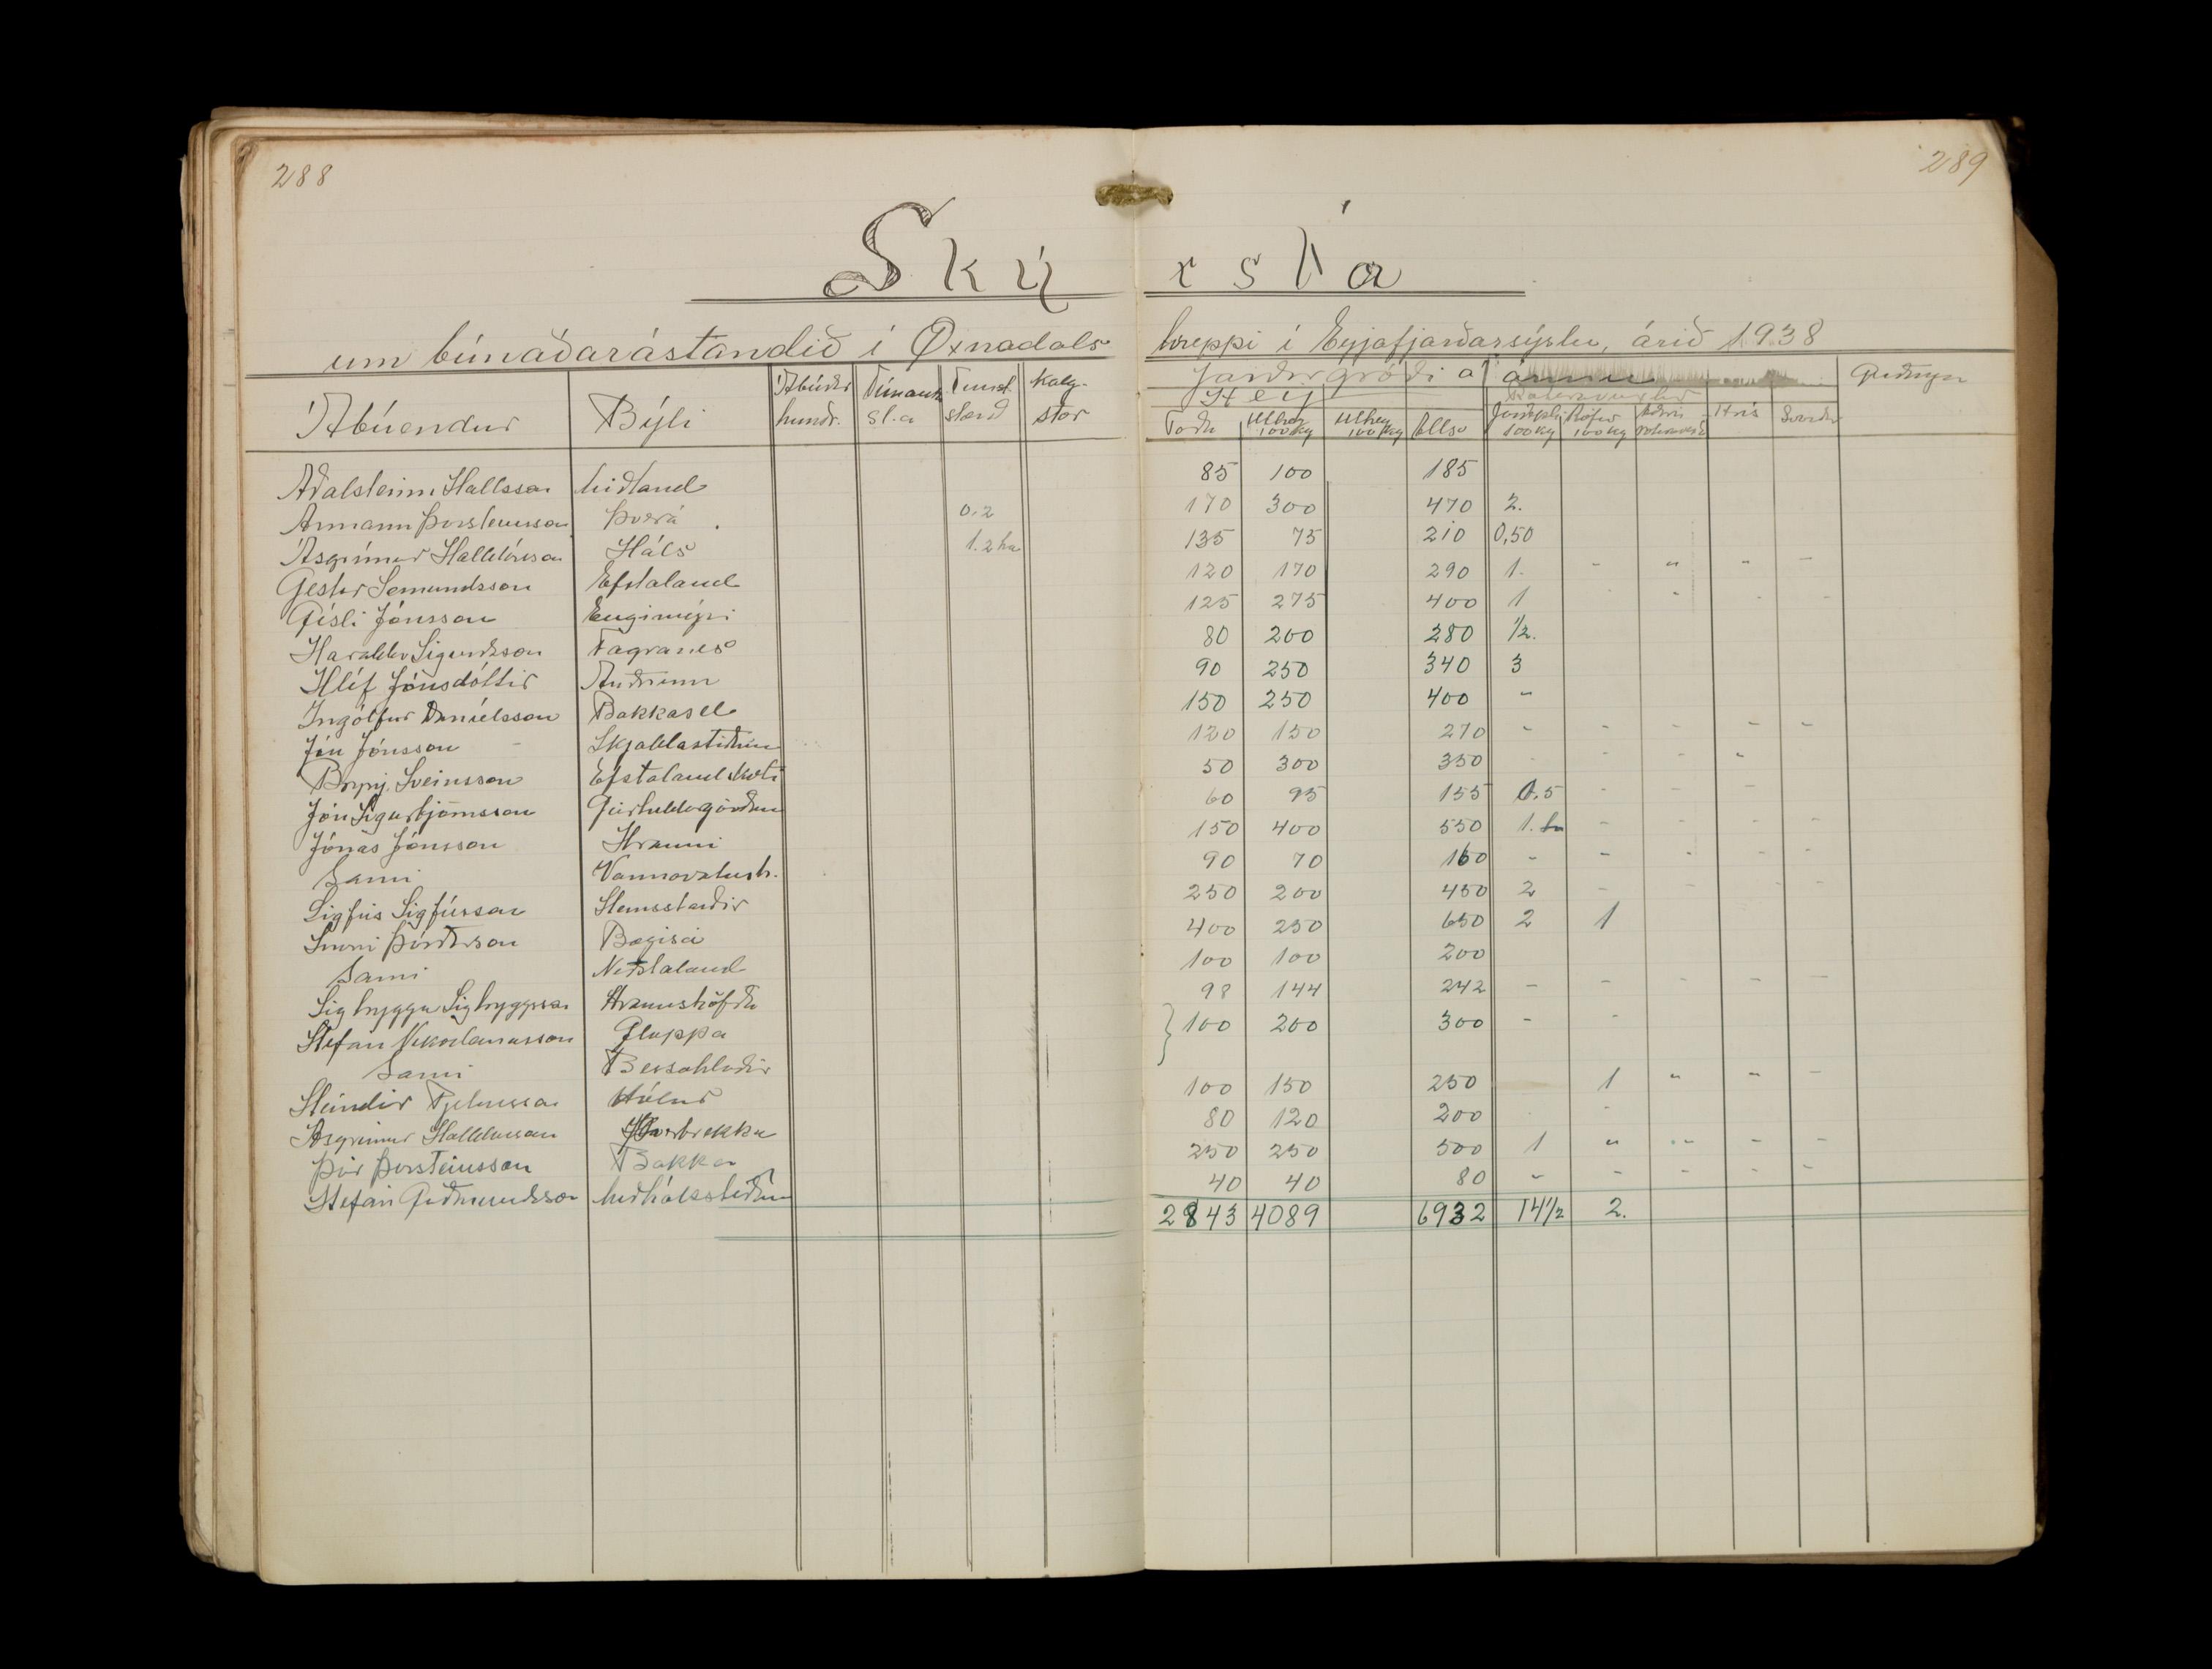 288
289
Ský rsla
um búnaðarástandið í Øxnadals hreppi í Eyjafjarðarsýslu, árið 1938
Jarðargróði á árinu
Hey
Ábúendur Býli Ábúðar hundr. Túnauk sl.a Tunst. stærð Kalg- stær Taða Uthey 100 kg Uthey 100 kg Alls Jarðepli 100 kg Rófur 100 kg Hrís Svörður
Aðalsteinn Hallsson Miðland 85 100 185
Armann Þorsteinsson Þverá . 0.2 170 300 470 2.
Ásgrímur Halldórsson Háls 1.2 ha 135 75 210 0,50
Gestur Semundsson Efstaland 120 170 290 1. - " - -
Gísli Jónsson Engimýri 125 275 400 1
Haraldur Sigurdsson Fagranes 80 200 280 1/2.
Hlíf Jónsdóttir Auðnum 90 250 340 3
Ingólfur Daníelsson Bakkasel 150 250 400 "
Jón Jónsson Skjaldastöðum 120 150 270 - - - - -
Brynj. Sveinsson Efstalandskoti 50 300 350
Jón Sigurbjörnsson Geirhildargörðum 60 95 155 0.5 - - -
Jónas Jónsson Hrauni 150 400 550 1. - - - -
Sami 90 70 160 - - - - -
Sigfús Sigfússon Steinsstaðir 250 200 450 2 - - - -
Snorri Þórðarson Bægisá 400 250 650 2 1
Sami Neðstaland 100 100 200
Sigtryggur Sigtryggsson Hraunshöfða 98 144 242 - - - - -
Stefán Nikodemusson Gloppa } 100 200 300 - -
Sami Bessahlaðir
Steindór Hólar 100 150 250 1 " " -
Asgrímur Halldorsson Þverbrekka 80 120 200
Þór Þorsteinsson Bakka 250 250 500 1 " " - -
Stefán Guðmundsson Miðhálsstöðum 40 40 80 - - - - -
2843 4089 6932 14 1/2 2.